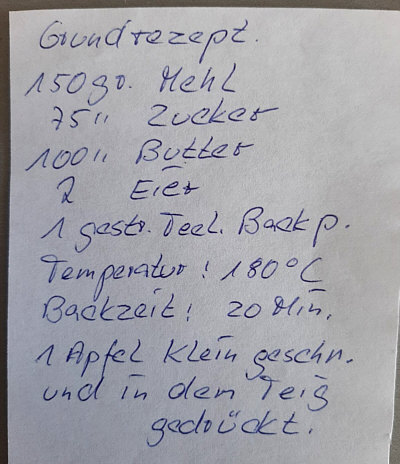 Grundrezept.
150gr. Mehl
75 " Zucker
100 " Butter
2 Eier
1 gestr. Teel. Backp.
Temperatur! 180°C
Backzeit! 20 Min.
1 Apfel klein geschn.
und in dem Teig
gedrückt.